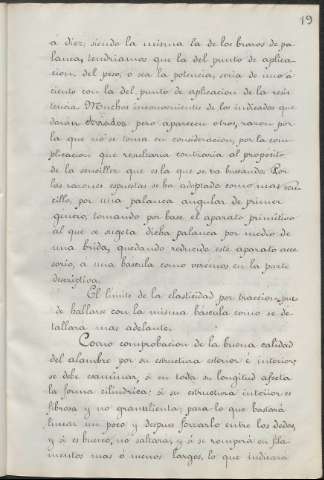 19
á diez; siendo la misma la de los brazos de pa-
lanca, tendriamos que la del punto de aplica-
cion del peso, ó sea la potencia, seria de uno á
ciento con la del punto de aplicacion de la resis
tencia. Muchos inconvenientes de los indicados que
daran obviados, pero aparecen otros, razon por
la que no se toma en consideracion, por la com-
plicacion que resultaria contraria al proposito
de la sencillez que es la que se va buscando. Por
las razones espuestas se ha adoptado como mas sen
cillo, por una palanca angular de primer
genero, tomando por base el aparato primitivo
al que se sugeta dicha palanca por medio de
una brida, quedando reducido este aparato acce
sorio, a una bascula como veremos en la parte
descriptiva.
El limite de la elasticidad por traccion, pue
de hallarse con la misma bascula como se de-
tallara mas adelante.
Como comprobacion de la buena calidad
del alambre por su estructura esterior é interior,
se debe examinar, si en toda su longitud afecta
la forma cilindrica; si su estructura interior es
fibrosa y no granulienta, para lo que bastará
limar un poco y despues forzarlo entre los dedos,
y si es bueno, no saltara, y si se romperá en fila
mentos mas ó menos largos, lo que indicara